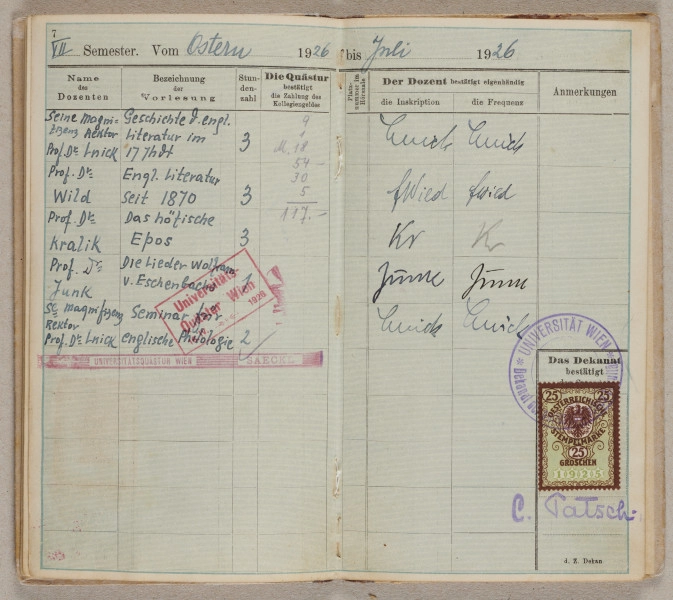 7
VII Semester. Vom Ostern 1926 bis Juli 1926
Name des Dozenten
Bezeichnung der Vorlesung
Stundenzahl
Die Quästur bestätigt die Zahlung des Kollegiengeldes
Der Dozent bestätigt eigenhändig
die Inskription
die Frequenz
Anmerkungen
Seine Magni- Geschichte d. engl.
fizenz Rektor Literatur im
Prof. Dr. Luick 17 Jhdt 3
Prof. Dr. Engl. Literatur
Wild seit 1870 3
Prof. Dr. Das höfische
Kralik Epos 3
Prof. Dr. Die Lieder Wolframs
Junk v. Eschenbachs 1
Se Magnifizenz Seminar für
Rektor
Prof. Dr. Luick englische Philologie 2
9
M. 18
54 –
30
5
117.–
Luick Luick
FWild FWild
Kr Kr
Junk Junk
Luick Luick
Universitäts
Quästur Wien
1926
UNIVERSITÄTSQUÄSTUR WIEN
UNIVERSITÄT WIEN
Das Dekanat
bestätigt
25 25
OESTERREICHISCHE
STEMPELMARKE
25
GROSCHEN
1925
C. Patsch.
d. Z. Dekan.